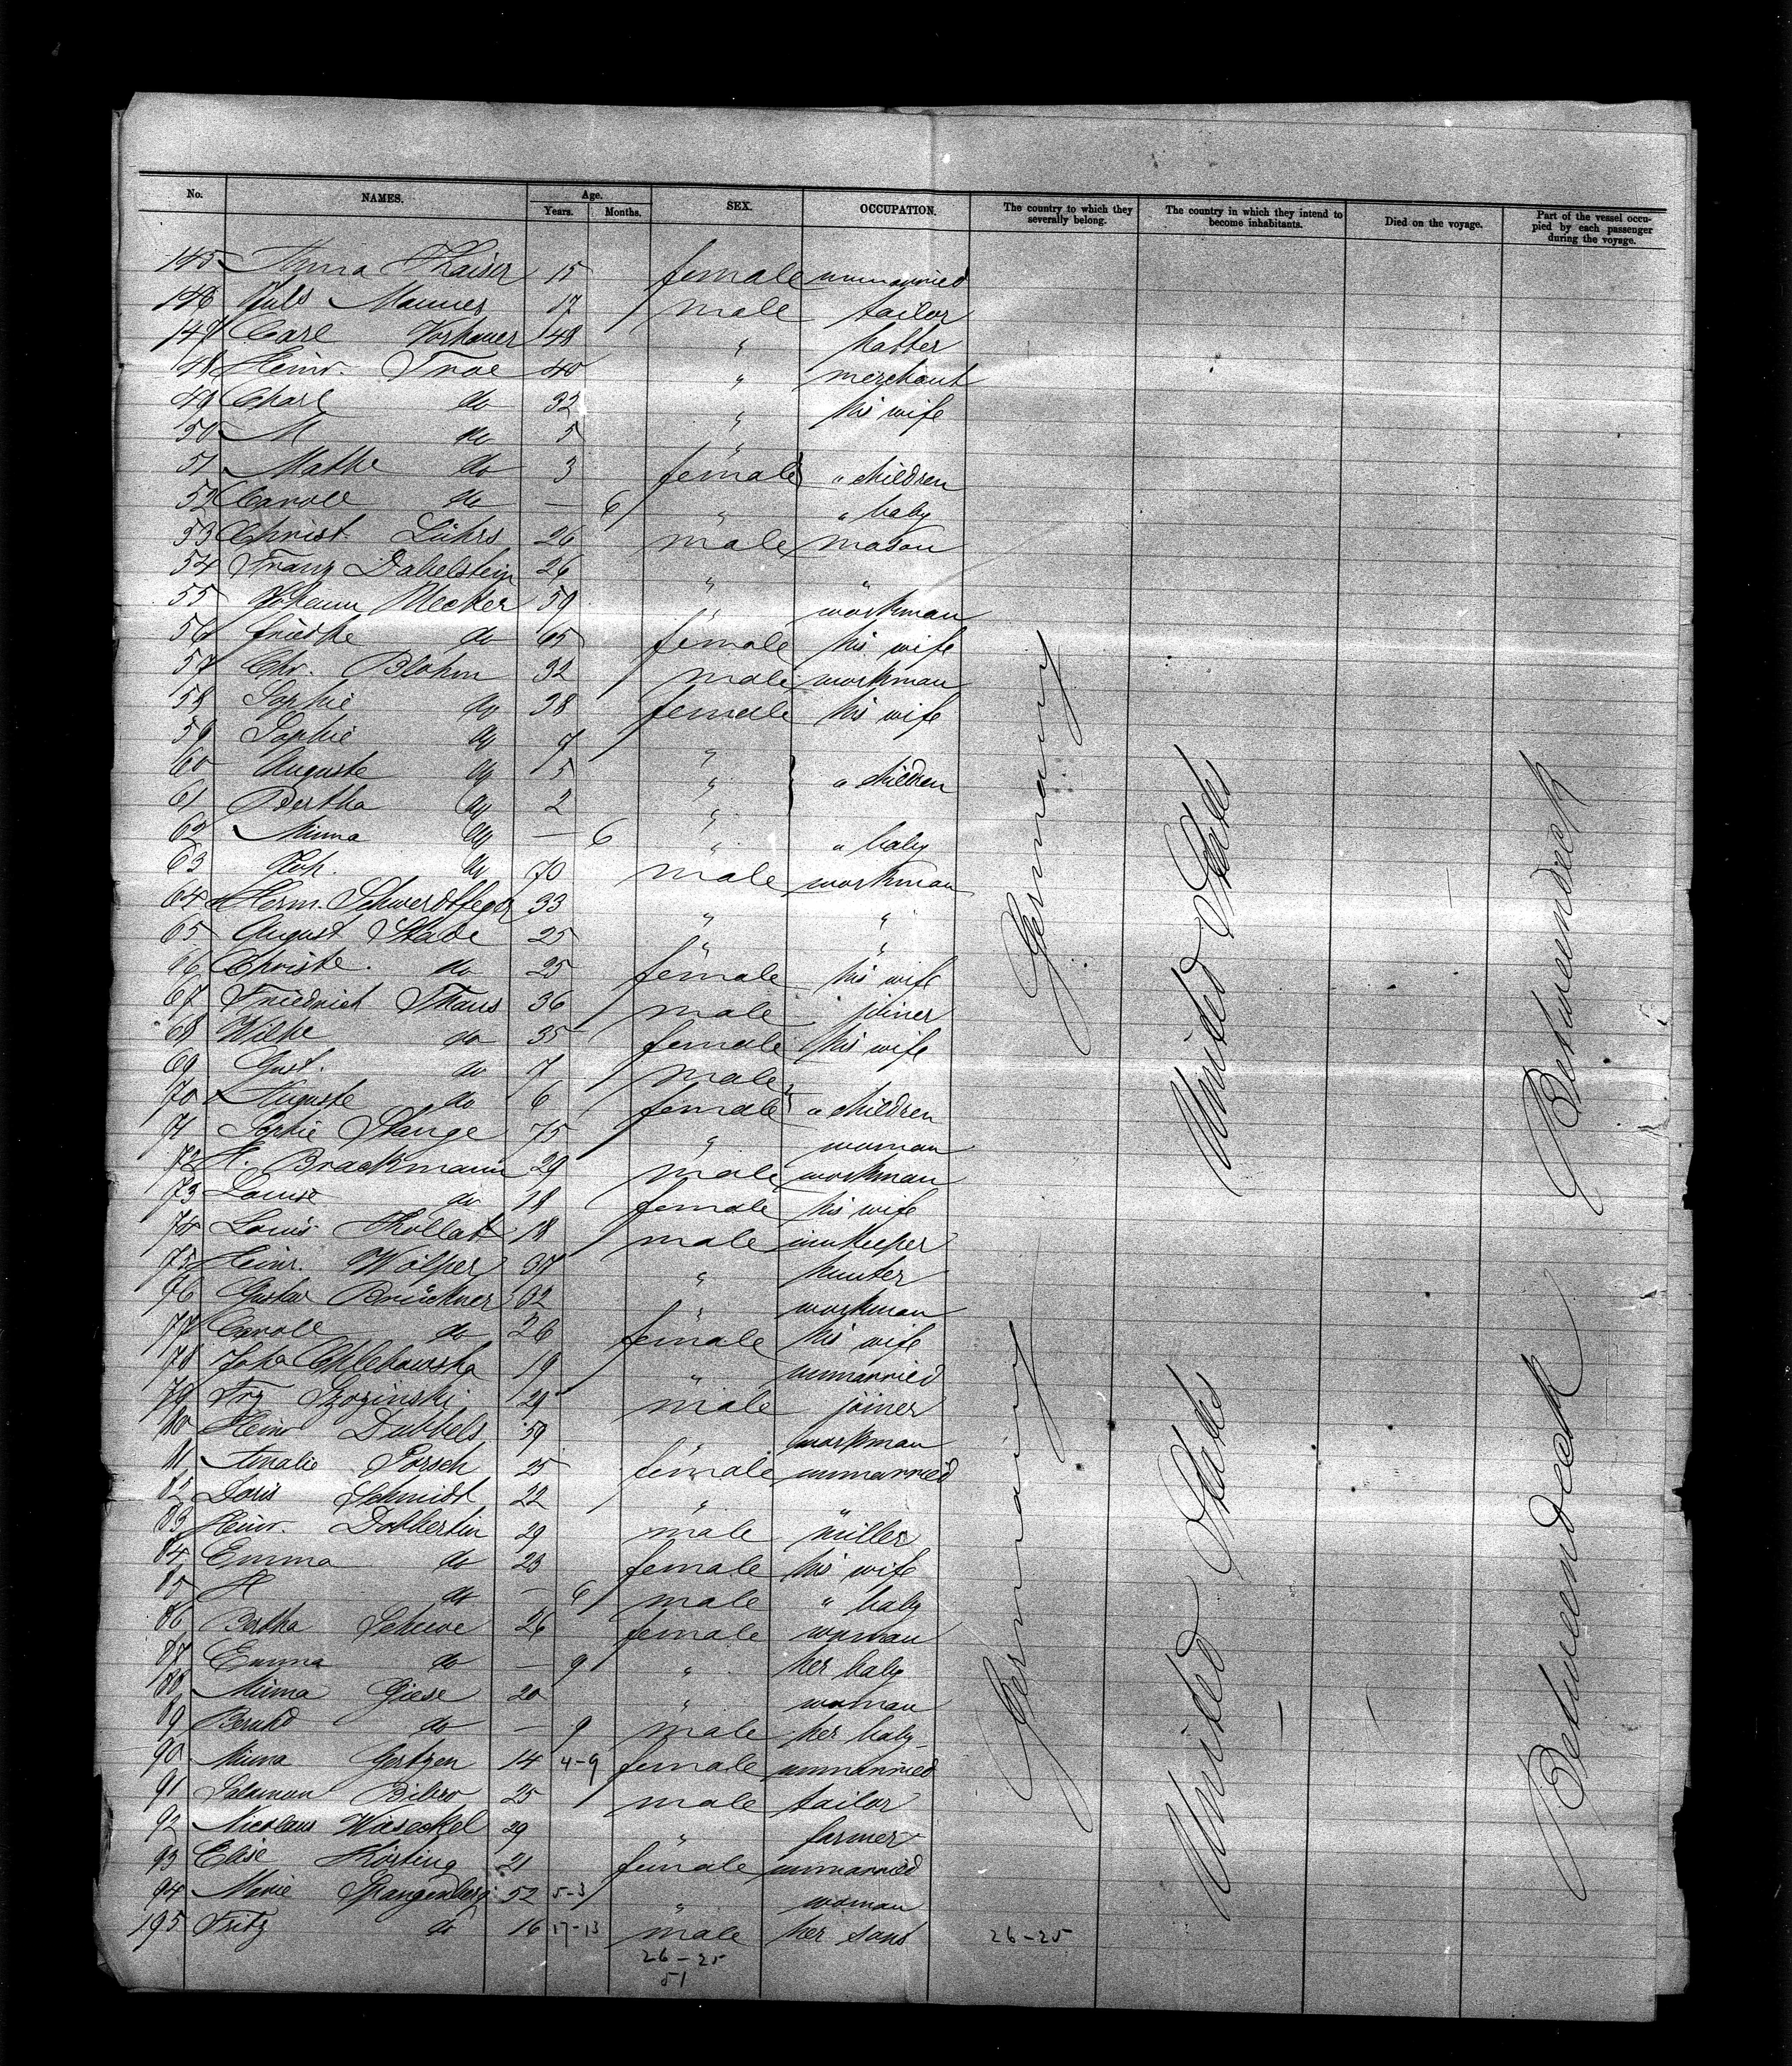 No. NAMES. Age. Years. Months. SEX. OCCUPATION. The country to which they severally belong. The country in which they intend to become inhabitants. Died on the voyage. Part of the vessel occupied by each passenger during the voyage.
145 Anna Kaiser 15 female unmarried
146 Juls Mannes 17 male tailor
147 Carl Vorhauer 48 " hatter
48 Heinr. Troe 40 " merchant
49 Charl do 32 " his wife
50 M do 5 "
51 Mathe do 3 female " children
52 Caroll do — 6 " " baby
53 Christ. Lührs 26 male mason
54 Franz Dabelstein 26 " "
55 Johann Mecker 59 " workman
56 Friedke do 65 female his wife
57 Chr. Blohm 32 male workman
58 Sophie do 38 female his wife
59 Sophie do 7 "
60 Auguste do 5 " " children
61 Bertha do 2 "
62 Minna do — 6 " " baby
63 Joh. do 70 male workman
64 Herm. Schwerdtfeger 33 " "
65 August Stade 25 " "
66 Christe. do 25 female his wife
67 Friedrich Thaus 36 male joiner
68 Wilhe do 35 female his wife
69 Gust. do 7 male
70 Auguste do 6 female " children
71 Sophie Stange 75 " woman
72 H. Brackmann 29 male workman
73 Louise do 18 female his wife
74 Louis Kollat 18 male innkeeper
75 Heinr. Wölper 37 " hunter
76 Gustav Brückner 32 " workman
77 Caroll do 26 female his wife
78 Joha Chlebowska 19 " unmarried
79 Frz Szozinski 29 male joiner
80 Heinr Dubbels 59 " workman
81 Amalie Porsch 25 female unmarried
82 Doris Schmidt 22 " "
83 Heinr. Dobbertin 29 male miller
84 Emma do 23 female his wife
85 H do — 6 male " baby
86 Bertha Schewe 26 female woman
87 Emma do — 9 " her baby
88 Minna Giese 20 " woman
89 Bernhd do — 9 male her baby
90 Minna Gertzen 14 4-9 female unmarried
91 Salomon Bibro 25 male tailor
92 Nicolaus Wiseckel 29 " farmer
93 Elise Körting 21 female unmarried
94 Marie Spangenberg 52 5-3 " woman
195 Fritz do 16 17-13 male her sons 26-25
26-25
51
Germany
United States
Betweendeck
Germany
United States
Betweendeck